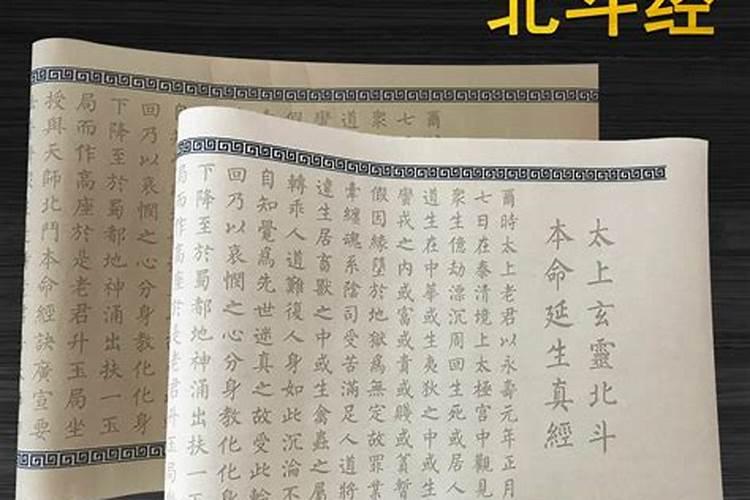 北斗经
太上玄靈北斗
本命延生真經
爾時太上老君以永壽元年正月
七日在泰清境上太極宮中觀見
眾生億劫漂沉周回生死或居人
道生在中華或生夷狄之中或生
蠻戎之內或富或貴或賤或暫
假因緣墮於地獄爲無定故罪業
牽纏魂系陰司受苦滿足人道將
違生居畜獸之中或生禽蟲之屬
轉乖人道難復人身如此沉淪不
自知覺爲先世迷真之故受此輪
回乃以哀憫之心分身教化化
下降至於蜀都地神涌出扶一
局而作高座於是老君升玉局
爾
七
眾
道
蠻
假
自
回乃以哀憫之心分身教化化身
下降至於蜀都地神涌出扶一玉
局而作高座於是老君升玉局坐
授與天師北鬥本命經訣廣宣要